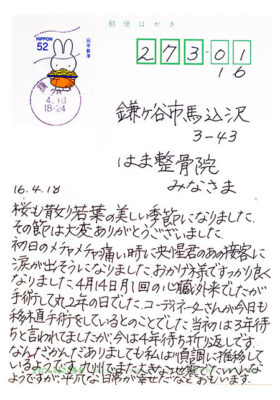 郵便はがき
NIPPON
52
日本郵便
273-01
16
4.18
18-24
鎌ヶ谷市馬込沢
3-43
はま整骨院
みなさま
16.4.18
桜も散り若葉の美しい季節になりました。
その節は大変ありがとうございました。
初日のメチャメチャ痛い時に央星君のあの接客に
涙が出そうになりました。おかげ様ですっかり良く
なりました。4月14日月1回の心臓外来でしたが
手術して丸2年の日でした。コーディネーターさんが今日も
移植手術をしているとのことでした。当初は3年待
ちと言われてましたが今は4年待ち折り返しです。
なんだかんだありましても私は順調に推移して
いるようです。九州でまた大きな地震で、いろんな
ようですが、平凡な日常が幸せだなとおもいます。